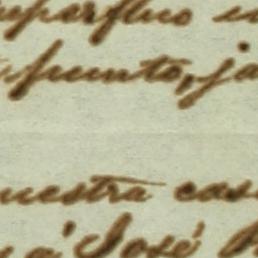 superfluo
punto, ja
nuestra cas
a José